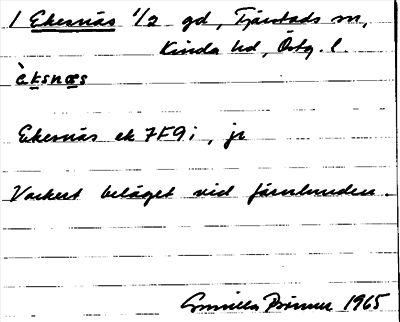 1 Ekesnäs 1/2 gd, Tjärstads sn,
Kinda hd, Östg. l.
èksnæs
Ekesnäs ek 7F9i, jr
Vackert beläget vid Järnlunden.
Gunilla 1965